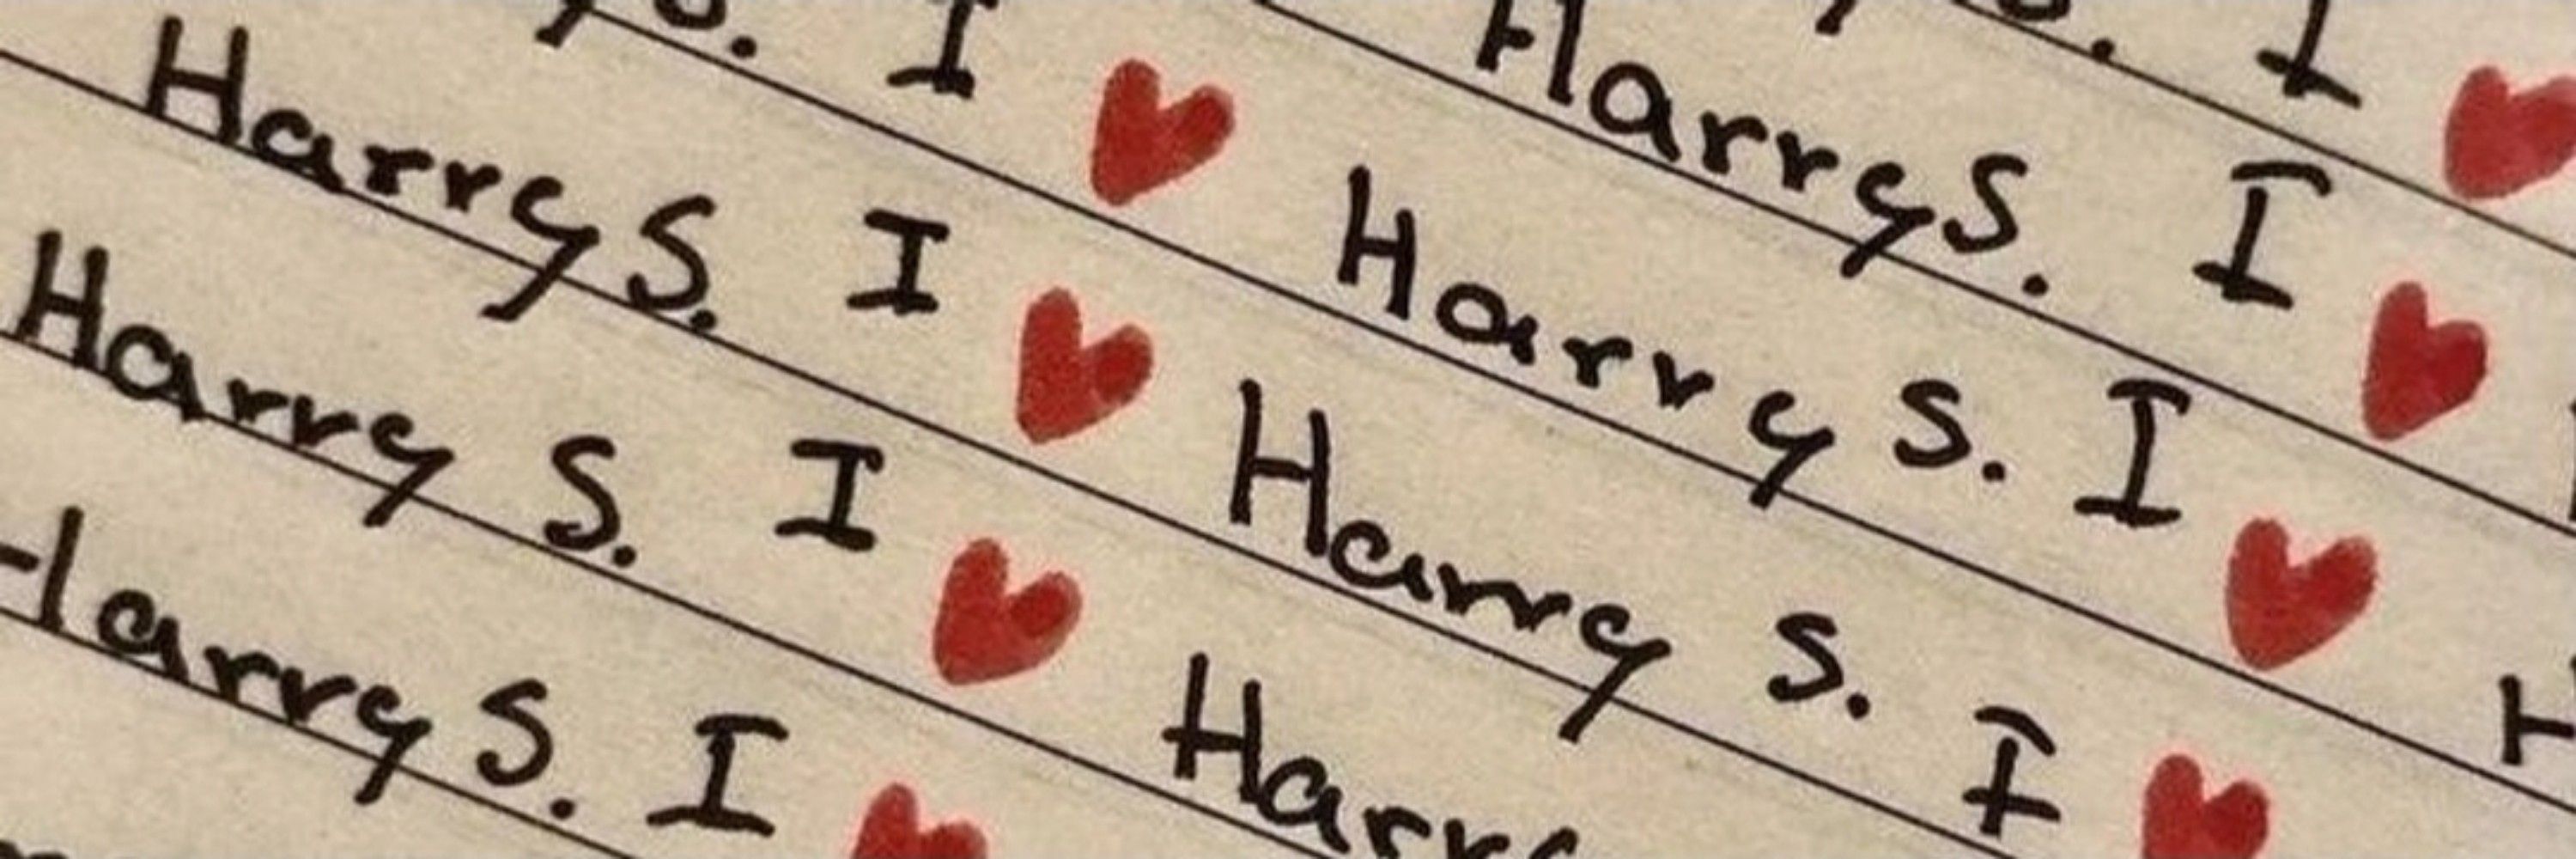 I ♥
Harry S. I ♥
I ♥ Harry S. I ♥
Harry S. I ♥ Harry S. I ♥
Harry S. I ♥ Harry S. I ♥
Harry S. I ♥ Harry